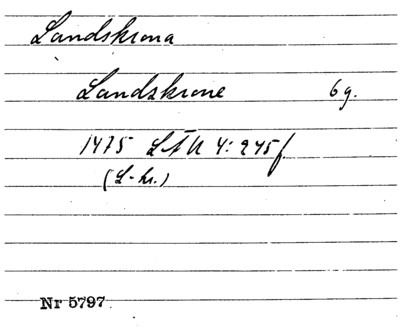 Landskrona
Landskrone 6 g.
1475 LÅU 4: 245 f
(L-kr.)
Nr 5797